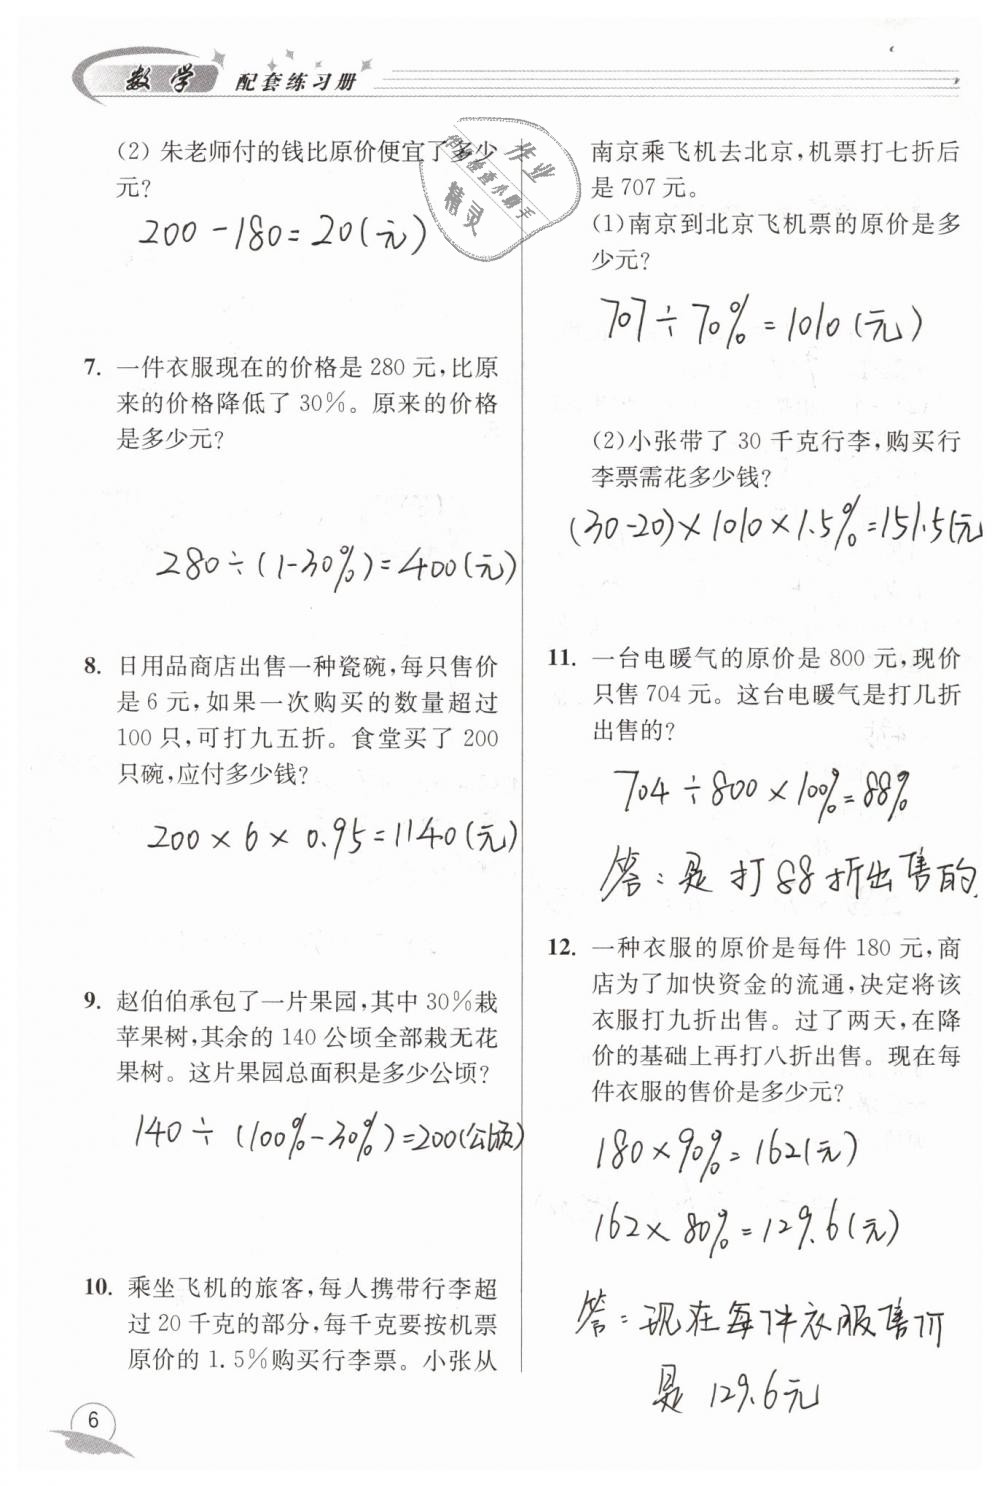 数学 配套练习册
(2) 朱老师付的钱比原价便宜了多少
元?
200-180=20(元)
7. 一件衣服现在的价格是 280 元,比原
来的价格降低了 30%。原来的价格
是多少元?
280÷(1-30%)=400(元)
8. 日用品商店出售一种瓷碗,每只售价
是 6 元,如果一次购买的数量超过
100 只,可打九五折。食堂买了 200
只碗,应付多少钱?
200×6×0.95=1140(元)
9. 赵伯伯承包了一片果园,其中 30%栽
苹果树,其余的 140 公顷全部栽无花
果树。这片果园总面积是多少公顷?
140÷(100%-30%)=200(公顷)
10. 乘坐飞机的旅客,每人携带行李超
过 20 千克的部分,每千克要按机票
原价的 1.5%购买行李票。小张从
南京乘飞机去北京,机票打七折后
是 707 元。
(1)南京到北京飞机票的原价是多
少元?
707÷70%=1010(元)
(2)小张带了 30 千克行李,购买行
李票需花多少钱?
(30-20)×1010×1.5%=151.5(元
11. 一台电暖气的原价是 800 元,现价
只售 704 元。这台电暖气是打几折
出售的?
704÷800×100%=88%
答:是打88折出售的
12. 一种衣服的原价是每件 180 元,商
店为了加快资金的流通,决定将该
衣服打九折出售。过了两天,在降
价的基础上再打八折出售。现在每
件衣服的售价是多少元?
180×90%=162(元)
162×80%=129.6(元)
答:现在每件衣服售价
是 129.6元
6
作业
作业检查小助手
精灵